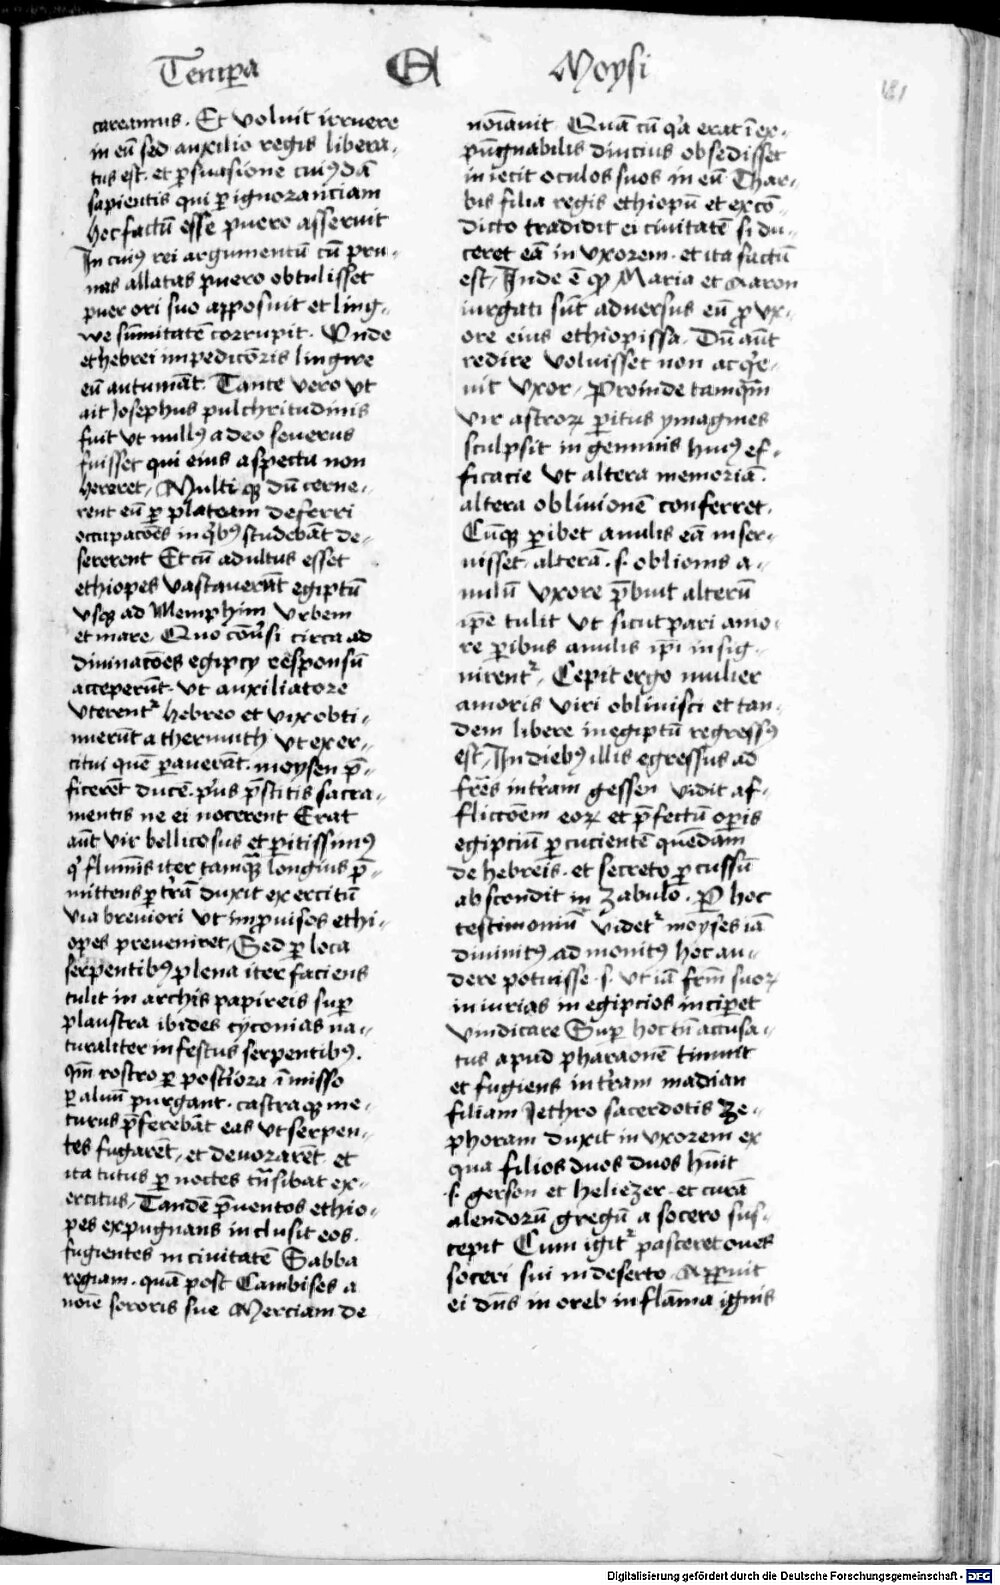 Temꝑa
Moysi
181
careamus. Et voluit irruere
in eū sed auxilio regis libera-
tus est. et ꝑsuasione cuiꝰdā
sapientis qui ꝑ ignoranciam
hoc factū esse puero asseruit
In cuiꝰ rei argumentū cū pru-
nas allatas puero obtulisset
puer ori suo apposuit et ling-
we sūmitatē corrupit. Vnde
et hebrei impedicōris lingwe
eū autumāt. Tante vero vt
ait Josephus pulchritudinis
fuit vt nullꝰ adeo seuerus
fuisset qui eius aspectu non
hereret, Multi qꝫ dū cerne-
rent eū ꝑ plateam deferri
occupacōes in qͥbꝰ studebāt de-
sererent Et cū adultus esset
ethiopes vastauerūt egiptū
vsqꝫ ad Memphim vrbem
et mare. Quo cōuͥsi circa ad
diuinacōes egipcy responsū
acceperūt. vt auxiliatore
vterentᷣ hebreo et vix obti-
nuerūt a thermuth vt exer-
citui quē ꝑauerāt. moysen p̄-
ficerēt ducē. pͥus p̄stitis sacra-
mentis ne ei nocerent Erat
aūt vir bellicosus et ꝑitissimꝰ
qͥ flumīs iter tamqꝫ longius p̄-
mittens ꝑ tr̄ā duxit exercitū
via breuiori vt imꝓuisos ethi-
opes preueniret, Sed ꝑ loca
serpentibꝰ plena iter faciens
tulit in archis papireis suꝑ
plaustra ibides cyconias na-
turaliter infestus serpentibꝰ.
qm̄ rostro ꝑ postͥiora īmisso
ꝑ aluū purgant. castraqꝫ me-
turus p̄ferebāt eas vt serpen-
tes fugarēt, et deuorarēt et
ita tutus ꝑ noctes tn̄sibat ex-
ercitus, Tandē p̄uentos ethio-
pes expugnans inclusit eos.
fugientes in ciuitatē Sabba
regiam. quā post Cambises a
noīe sororis sue Merciam de
noīauit. Quā cū qͥa erat īex-
pūgnabilis diucius obsedisset
iniecit oculos suos in eū Thar-
bis filia regis ethiopū et ex cō-
dicto tradidit ei ciuitatē si du-
ceret eā in vxorem. et ita factū
est, Inde ē qꝫ Maria et Aaron
iurgati sūt aduersus eū ꝓ vx-
ore eius ethiopissa. Dū aūt
redire voluisset non acqͥe-
uit vxor, Proinde tamqm̄
vir astroꝝ ꝑitus ymagines
sculpsit in gemmis huiꝰ ef-
ficacie vt altera memoriā.
altera obliuionē conferret.
Cūqꝫ ꝑibet anulis eā inser-
uisset. alterā .s. obliōnis a-
nulū vxore p̄buit alterū
ip̄e tulit vt sicut pari amo-
re ꝑibus anulis ip̄i insig-
nirentᷣ, Cepit ergo mulier
amoris viri obliuisci et tan-
dem libere in egiptū regressꝰ
est, In diebꝰ illis egressus ad
fr̄es in tr̄am gessen vidit af-
flicc̄oem eoꝝ et p̄fectū oꝑis
egipciū ꝑcucientē quendam
de hebreis. et secreto ꝑcussū
abscondit in zabulo. Ꝑ hoc
testimoniū videtᷣ moyses iā
diuinitꝰ admonitꝰ hoc au-
dere potuisse .s. vt iā fr̄m suoꝝ
iniurias in egipcios inciꝑet
vindicare Suꝑ hoc tn̄ accusa-
tus apud pharaonē timuit
et fugiens in tr̄am madian
filiam Jethro sacerdotis Ze-
phoram duxit in vxorem ex
qua filios duos duos hūit
.s. gerson et heliezer. et curā
alendorū gregū a socero sus-
cepit Cum igitᷣ pasceret oues
soceri sui in deserto. Apꝑuit
ei dn̄s in oreb in flāma ignis
Digitalisierung gefördert durch die Deutsche Forschungsgemeinschaft - DFG